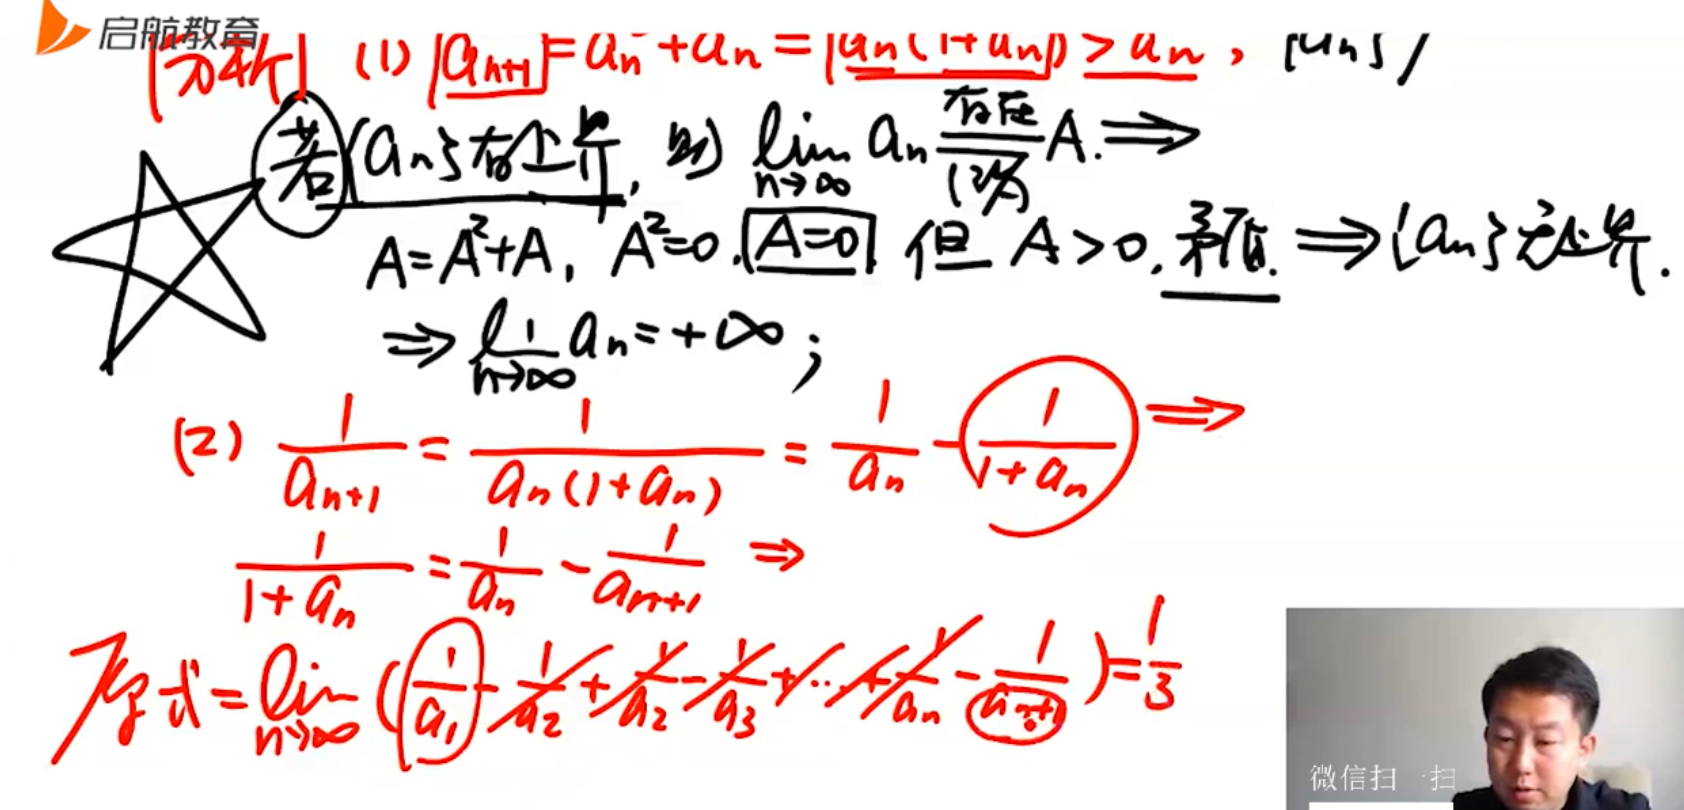 启航教育
[分析] (1) |a_{n+1}| = a_n² + a_n = |a_n(1+a_n)| > a_n, {a_n}↗
若{a_n}有上界, 则 lim_{n→∞} a_n 存在 (记为) A. ⟹
A=A²+A, A²=0, A=0 但 A>0, 矛盾. ⟹ {a_n}无上界.
⟹ lim_{n→∞} a_n = +∞;
(2) 1/a_{n+1} = 1/(a_n(1+a_n)) = 1/a_n - 1/(1+a_n) ⟹
1/(1+a_n) = 1/a_n - 1/a_{n+1} ⟹
原式 = lim_{n→∞} (1/a_1 - 1/a_2 + 1/a_2 - 1/a_3 + ... + 1/a_n - 1/a_{n+1}) = 1/3
微信扫一扫